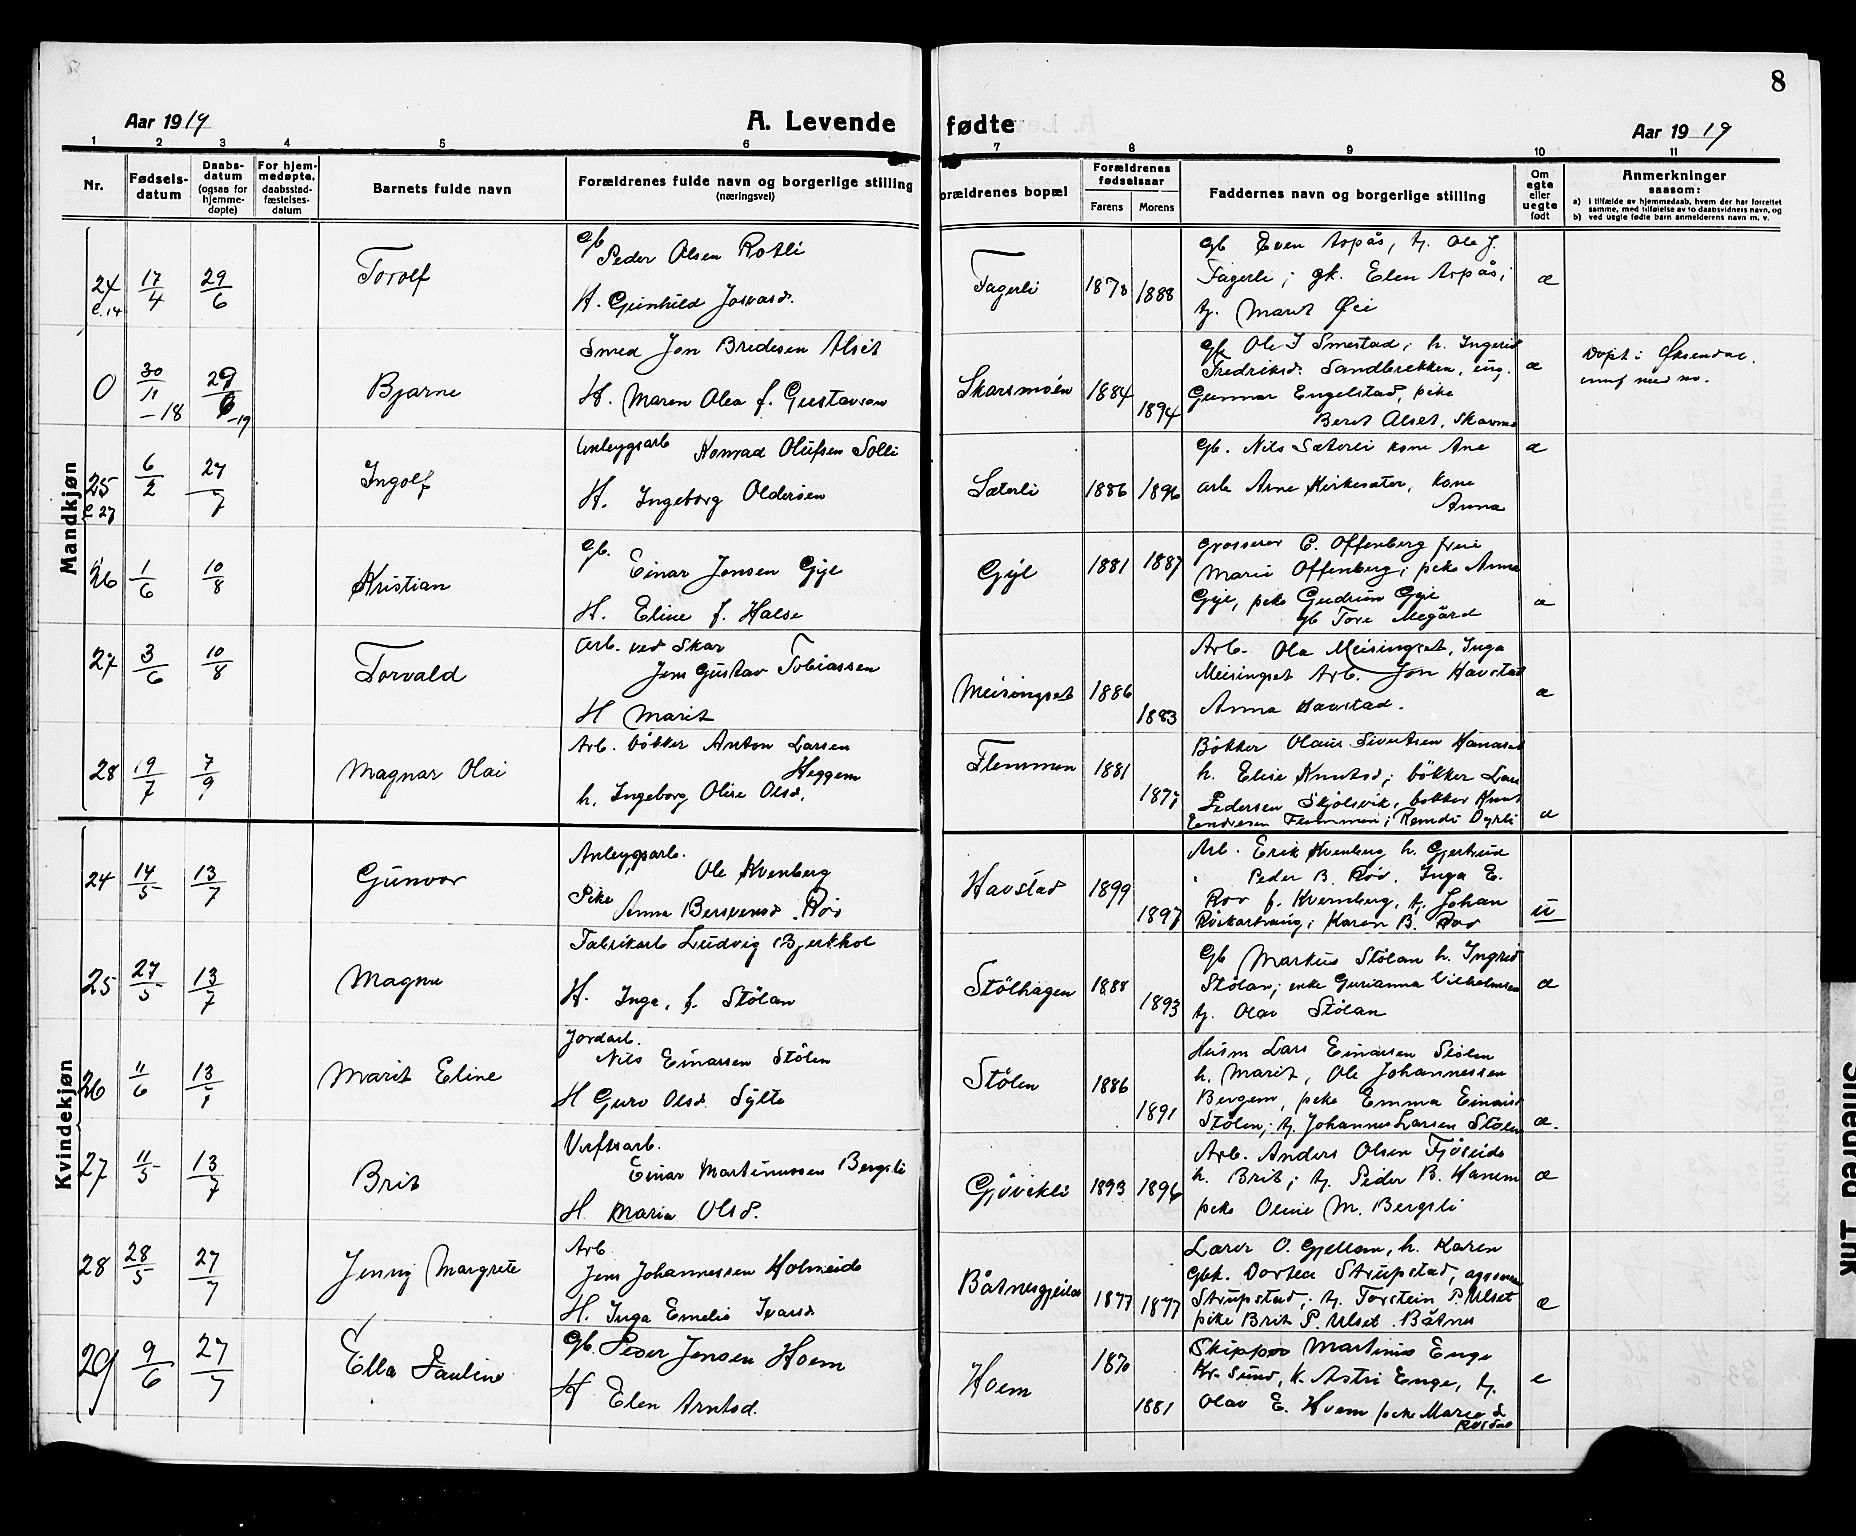 8
Aar 1919
A. Levende fødte
Aar 1919
1 2 3 4 5 6 7 8 9 10 11
Nr.
Fødsels-
datum
Daabs-
datum
(ogsaa for
hjemme-
døpte)
For hjem-
medøpte,
daabsstad-
fæstelses-
datum
Barnets fulde navn
Forældrenes fulde navn og borgerlige stilling
(næringsvei)
orældrenes bopæl
Forældrenes
fødselsaar
Farens
Morens
Faddernes navn og borgerlige stilling
Om
egte
eller
uegte
født
Anmerkninger
saasom:
a) i tilfælde av hjemmedaab, hvem der har forrettet
samme, med tilføielse av to daabsvidners navn, og
b) ved uegte fødte barn anmelderens navn m. v.
Mandkjøn
24 17/4 29/6 Torolf
Gb Peder Olsen Rotli
H. Gunhild
Fagerli 1878 1888
Gb Even Aspås, tj. Ole J.
Fagerli; gk. Elen Aspås;
tj. Marit Øie
æ
0 30/11 -18 29/6 -19 Bjarne
Smed Jon Bredesen Alset
H. Maren Olea f. Gustavson
Skarsmoen 1884 1894
Ole I Smestad; h. Ingerid
Fredriksd. Sandbrekken, ung.
Gunnar Engelstad, pike
Beret Alset,
æ
Døpt i Øksendal
25 6/2 27/7 Ingolf
Anlegsarb Konrad Olufsen Solli
H. Ingeborg Oldersen
Sæterli 1886 1896
Gb. Nils Sæterli kone Ane
arb Arne Kirkesæter, kone
Anna
æ
26 1/6 10/8 Kristian
Gb. Einar Jonsen Gyl
H. Eline f. Halse
Gyl 1881 1887
Grosserer C. Offenberg frue
Marie Offenberg; pike Anna
Gyl, pike Gudrun Gyl
gb Tore Megård
æ
27 3/6 10/8 Torvald
Arb. ved Skar
Jens Gustav Tobiassen
H Marit
Meisingset 1886 1883
Arb. Ola Meisingset, Inga
Meisingset Arb. Jon Havstad
Anna Havstad.
æ
28 19/7 7/9 Magnar Olai
Arb. bøkker Anton Larsen
Heggem
h. Ingeborg Olise Olsd.
Flemmen 1881 1877
Bøkker Olaus Sivertsen
h. Elise Knutsd; bøkker Lars
Pedersen Skjølsvik, bøkker Knut
Flemmen;
æ
Kvindekjøn
24 14/5 13/7 Gunvor
Anlegsarb. Ole Kvenberg
Pike Anna Bersvensd. Røv
Havstad 1899 1897
Arb. Erik Kvenberg h. Gjertrud
Peder B. Røv, Inga E.
Røv f. Kvernberg, tj. Johan
Karen B. Røv
u
25 27/5 13/7 Magna
Fabrikarb Ludvig Bjerkhol
H. Inga, f. Stølan
Stølhagen 1888 1893
Gb Markus Stølan h. Ingrid
Stølan; enke Gurianna Vilhelmsen
tj. Olav Stølan
æ
26 11/6 13/7 Marit Eline
Jordarb.
Nils Einarsen Stølen
H Guro Olsd. Sylte
Stølen 1886 1891
Husm Lars Einarsen Stølen
h. Marit, Ole Johannessen
Bergem, pike Emma Einarsd
Stølen; tj. Johannes Larsen Stølen
æ.
27 11/5 13/7 Brit
Verftsarb.
Einar Martinussen Bergsli
H Maria Olsd.
Gjøvikli 1893 1896
Arb. Anders Olsen Fjøseide
h. Brit; tj. Peder B. Hanem
pike Oline M. Bergsli
æ
28 28/5 27/7 Jenny Margrete
Arb
Jens Johannessen Holmeide
H. Inga Emelie Ivarsd
1877 1877
Lærer O. Gjellan, h. Karen
Gbk. Dortea Strupstad,
Strupstad; tj. Torstein P. Ulset
pike Brit P. Ulset. Båtnes
æ
29 9/6 27/7 Ella Pauline
Gb. Peder Jensen Hoem
H Elen Arntsd.
Hoem 1870 1881
Skipper Martinus Enge
Kr. Sund, h. Astri Enge, tj.
Olav E. Hoem pike Marie
e
Smedred Ink